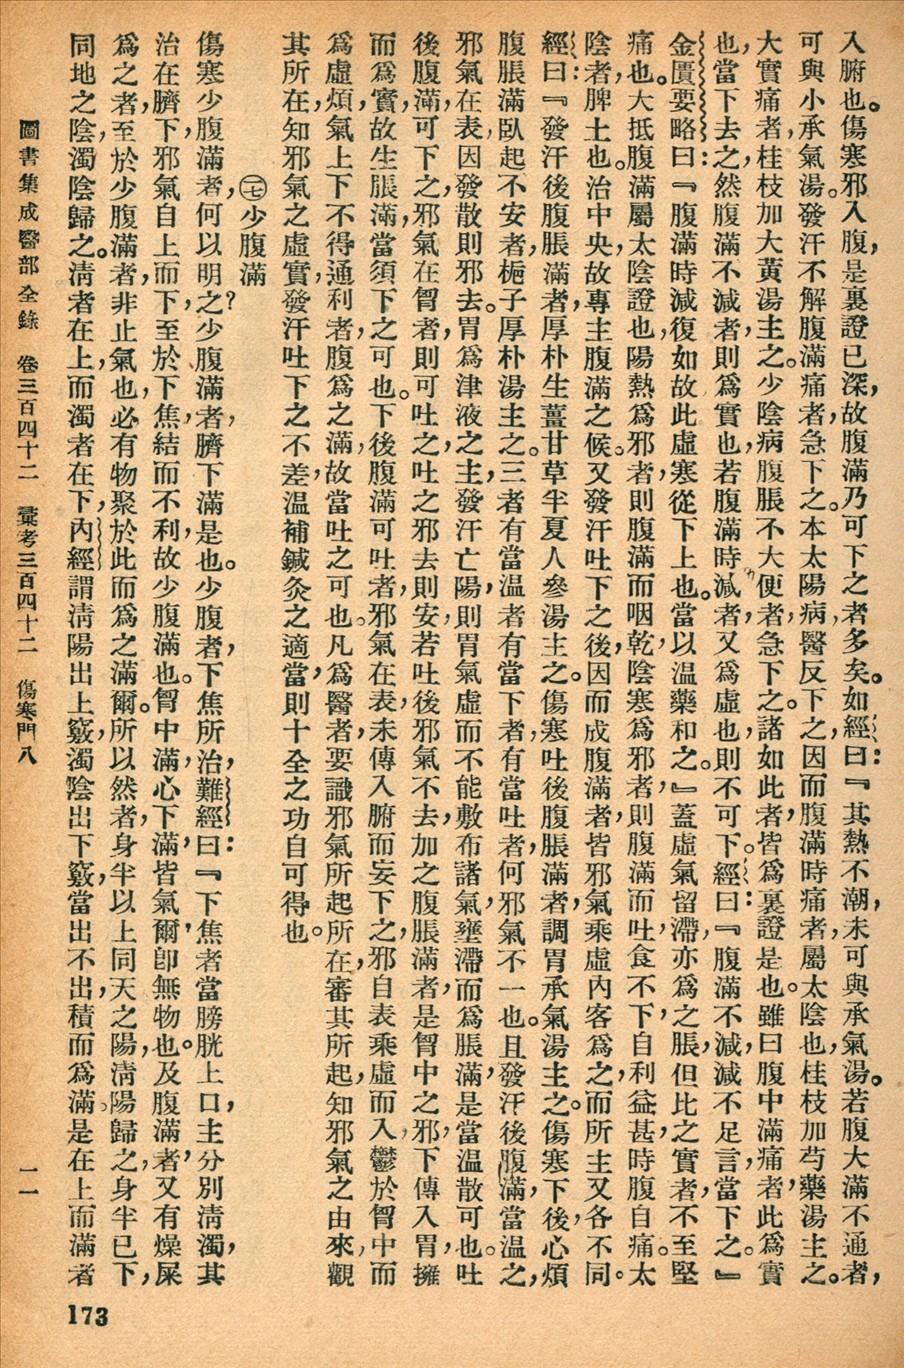 入腑也。傷寒邪入腹，是裏證已深，故腹滿乃可下之者多矣。如經曰：『其熱不潮，未可與承氣湯。若腹大滿不通者，
可與小承氣湯。發汗不解腹滿痛者，急下之。本太陽病，醫反下之，因而腹滿時痛者，屬太陰也，桂枝加芍藥湯主之。
大實痛者，桂枝加大黃湯主之。少陰病腹脹不大便者，急下之。諸如此者，皆爲裏證是也。雖曰腹中滿痛者，此爲實
也，當下去之，然腹滿不減者，則爲實也，若腹滿時減者，又爲虛也，則不可下。經曰：『腹滿不減，減不足言，當下之。』
金匱要略曰：『腹滿時減，復如故，此虛寒從下上也。當以温藥和之。』蓋虛氣留滯，亦爲之脹，但比之實者，不至堅
痛也。大抵腹滿屬太陰證也，陽熱爲邪者，則腹滿而咽乾，陰寒爲邪者，則腹滿而吐，食不下，自利益甚，時腹自痛。太
陰者，脾土也。治中央，故專主腹滿之候。又發汗吐下之後，因而成腹滿者，皆邪氣乘虛內客爲之，而所主又各不同。
經曰：『發汗後腹脹滿者，厚朴生薑甘草半夏人參湯主之。傷寒吐後腹脹滿者，調胃承氣湯主之。傷寒下後，心煩
腹脹滿臥起不安者，梔子厚朴湯主之。三者有當温者，有當下者，有當吐者，何邪氣不一也。且發汗後腹滿，當温之，
邪氣在表，因發散則邪去。胃爲津液之主，發汗亡陽，則胃氣虛而不能敷布諸氣，壅滯而爲脹滿，是當温散可也。吐
後腹滿，可下之，邪氣在胷者，則可吐之，吐之邪去則安，若吐後邪氣不去，加之腹脹滿者，是胷中之邪，下傳入胃，擁
而爲實，故生脹滿，當須下之可也。下後腹滿可吐者，邪氣在表，未傳入腑而妄下之，邪自表乘虛而入，鬱於胷中而
爲虛煩，氣上下不得通利者，腹爲之滿，故當吐之可也。凡爲醫者，要識邪氣所起所在，審其所起，知邪氣之由來，觀
其所在，知邪氣之虛實，發汗吐下之不差，温補鍼灸之適當，則十全之功自可得也。
㊁七少腹滿
傷寒少腹滿者，何以明之？少腹滿者，臍下滿是也。少腹者，下焦所治，難經曰：『下焦者當膀胱上口，主分別清濁，其
治在臍下，邪氣自上而下，至於下焦，結而不利，故少腹滿也。胷中滿，心下滿，皆氣爾，卽無物也。及腹滿者，又有燥屎
爲之者，至於少腹滿者，非止氣也，必有物聚於此而爲之滿爾。所以然者，身半以上同天之陽，清陽歸之，身半已下，
同地之陰，濁陰歸之。清者在上，而濁者在下，內經謂清陽出上竅，濁陰出下竅，當出不出，積而爲滿。是在上而滿者
圖書集成醫部全錄　卷三百四十二　彙考三百四十二　傷寒門八　一一
173